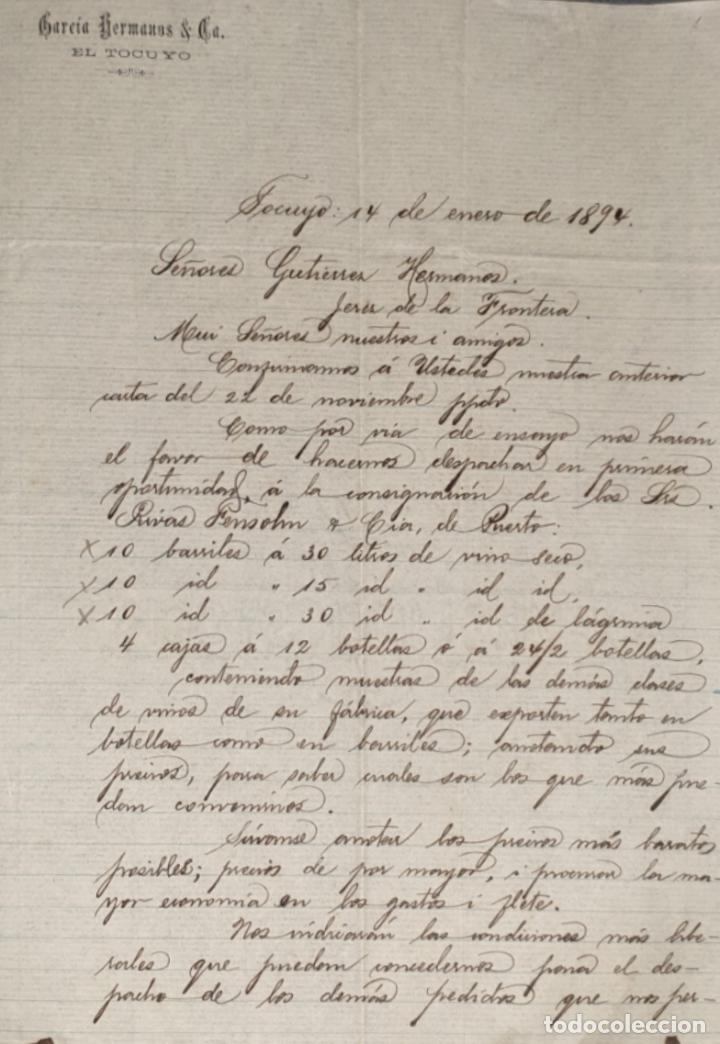 García Hermanos & Ca.
EL TOCUYO
Tocuyo: 14 de enero de 1894.
Señores Gutierrez Hermanos.
Jerez de la Frontera.
Mui Señores nuestros i amigos.
Confirmamos á Ustedes nuestra anterior
carta del 22 de noviembre ppdo.
Como por via de ensayo nos harán
el favor de hacernos despachar en primera
oportunidad, á la consignación de los Srs.
Rivas Fensohn & Cia, de Puerto:
x 10 barriles á 30 litros de vino seco,
x 10 id " 15 id " id id,
x 10 id " 30 id " id de lágrima
4 cajas á 12 botellas ó á 24/2 botellas,
conteniendo muestras de las demás clases
de vinos de su fábrica, que exporten tanto en
botellas como en barriles; anotando sus
precios, para saber cuales son los que más pue-
dan convenirnos.
Sírvanse anotar los precios más baratos
posibles; precios de por mayor, i procurar la ma-
yor economía en los gastos i flete.
Nos indicarán las condiciones más libe-
rales que puedan concedernos para el des-
pacho de los demás pedidos que nos per-
todocoleccion